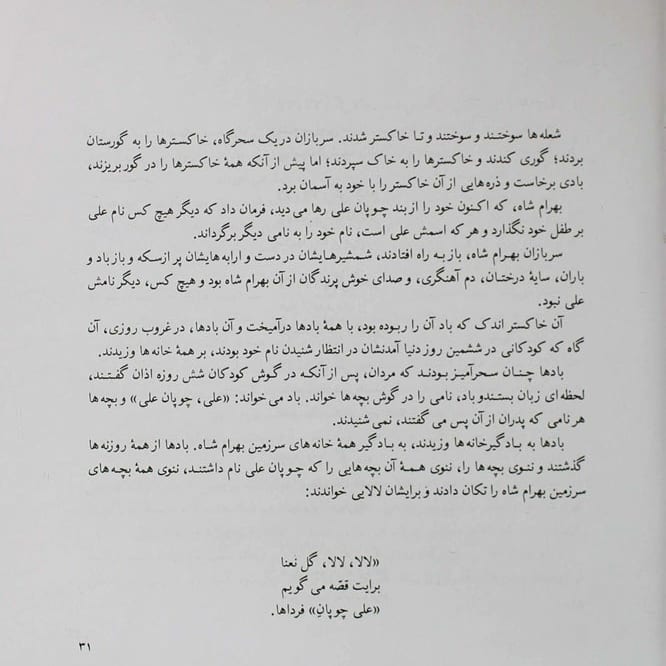 شعله‌ها سوختند و سوختند و تا خاکستر شدند. سربازان در یک سحرگاه، خاکسترها را به گورستان
بردند؛ گوری کندند و خاکسترها را به خاک سپردند؛ اما پیش از آنکه همهٔ خاکسترها را در گور بریزند،
بادی برخاست و ذره‌هایی از آن خاکستر را با خود به آسمان برد.
بهرام شاه، که اکنون خود را از بند چوپان علی رها می‌دید، فرمان داد که دیگر هیچ کس نام علی
بر طفل خود نگذارد و هر که اسمش علی است، نام خود را به نامی دیگر برگرداند.
سربازان بهرام شاه، باز به راه افتادند، شمشیرهایشان در دست و ارابه‌هایشان پر از سکه و باز باد و
باران، سایهٔ درختان، دم آهنگری، و صدای خوش پرندگان از آن بهرام شاه بود و هیچ کس، دیگر نامش
علی نبود.
آن خاکستر اندک که باد آن را ربوده بود، با همهٔ بادها درآمیخت و آن بادها، در غروب روزی، آن
گاه که کودکانی در ششمین روز دنیا آمدنشان در انتظار شنیدن نام خود بودند، بر همهٔ خانه‌ها وزیدند.
بادها چنان سحرآمیز بودند که مردان، پس از آنکه در گوش کودکان شش روزه اذان گفتند،
لحظه‌ای زبان بستند و باد، نامی را در گوش بچه‌ها خواند. باد می‌خواند: «علی، چوپان علی» و بچه‌ها
هر نامی که پدران از آن پس می‌گفتند، نمی‌شنیدند.
بادها به بادگیر خانه‌ها وزیدند، به بادگیر همهٔ خانه‌های سرزمین بهرام شاه. بادها از همهٔ روزنه‌ها
گذشتند و ننوی بچه‌ها را، ننوی همهٔ آن بچه‌هایی را که چوپان علی نام داشتند، ننوی همهٔ بچه‌های
سرزمین بهرام شاه را تکان دادند و برایشان لالایی خواندند:
«لالا، لالا، گل نعنا
برایت قصّه می‌گویم
«علی چوپانِ» فرداها.
۳۱